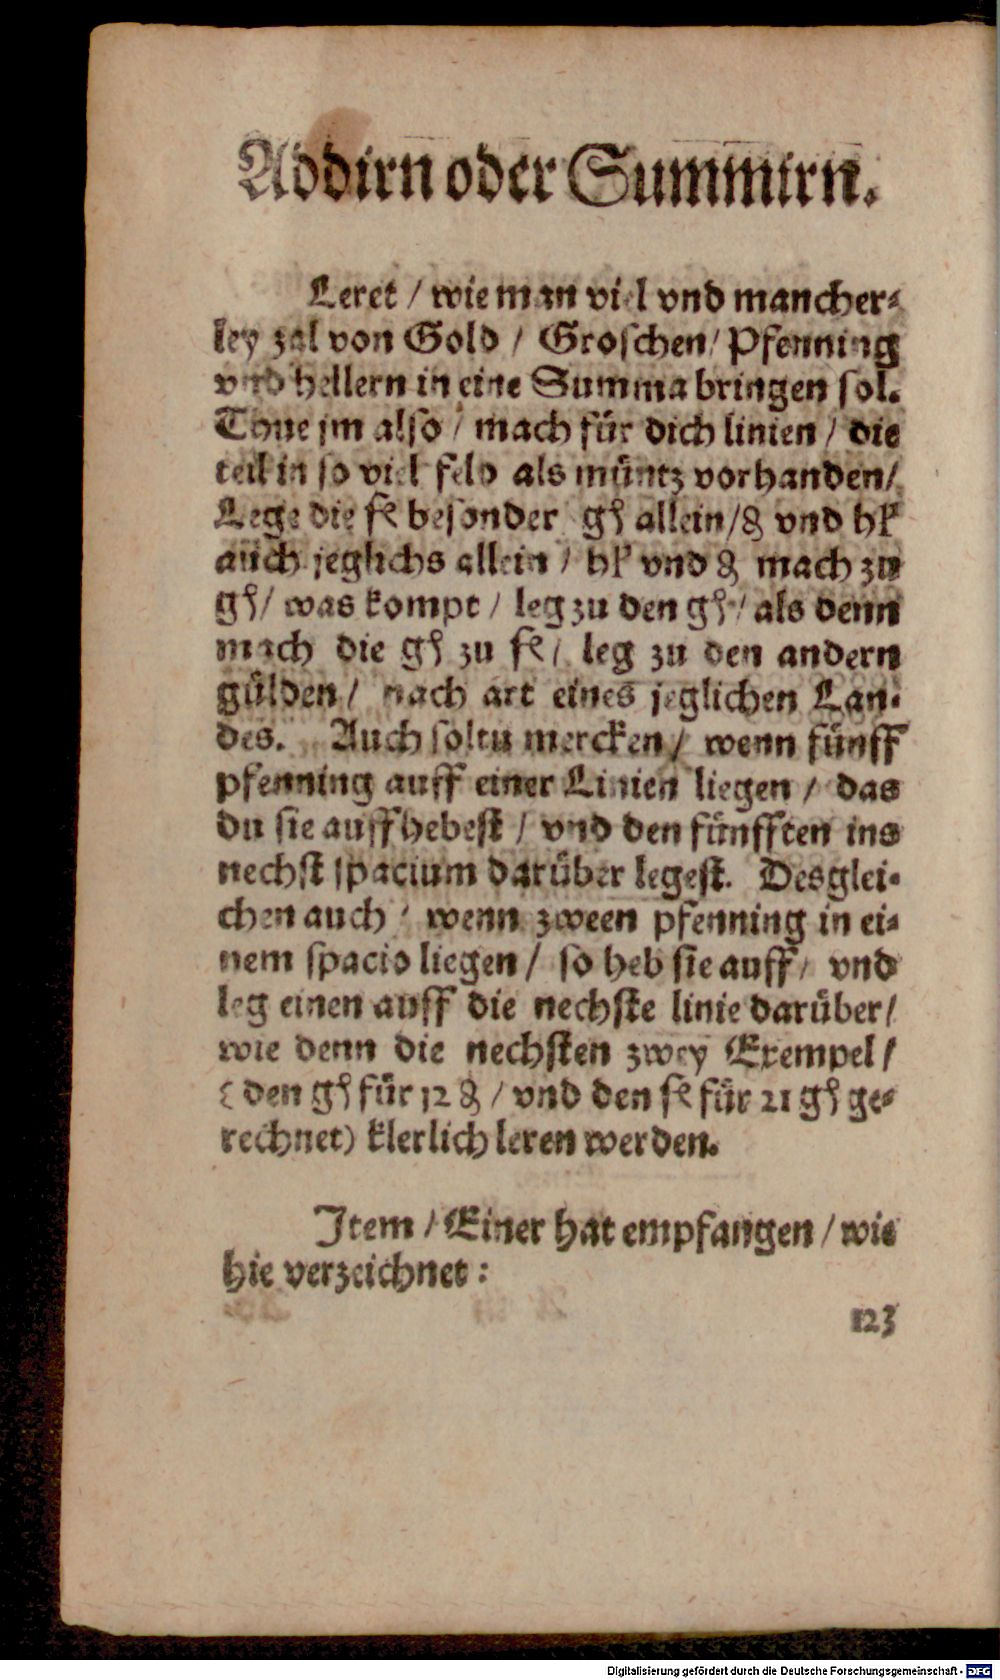 Addirn oder Summirn.
Leret / wie man viel vnd mancher-
ley zal von Gold / Groschen / Pfenning
vnd hellern in eine Summa bringen sol.
Thue jm also / mach für dich linien / die
teil in so viel feld als müntz vorhanden /
Lege die fl besonder gß allein / ₰ vnd hl
auch jeglichs allein / hl vnd ₰ mach zu
gß / was kompt / leg zu den gß / als denn
mach die gß zu fl / leg zu den andern
gülden / nach art eines jeglichen Lan-
des. Auch soltu mercken / wenn fünff
pfenning auff einer Linien liegen / das
du sie auffhebest / vnd den fünfften ins
nechst spacium darüber legest. Desglei-
chen auch / wenn zween pfenning in ei-
nem spacio liegen / so heb sie auff / vnd
leg einen auff die nechste linie darüber /
wie denn die nechsten zwey Exempel /
(den gß für 12 ₰ / vnd den fl für 21 gß ge-
rechnet) klerlich leren werden.
Item / Einer hat empfangen / wie
hie verzeichnet :
123
Digitalisierung gefördert durch die Deutsche Forschungsgemeinschaft - DFG